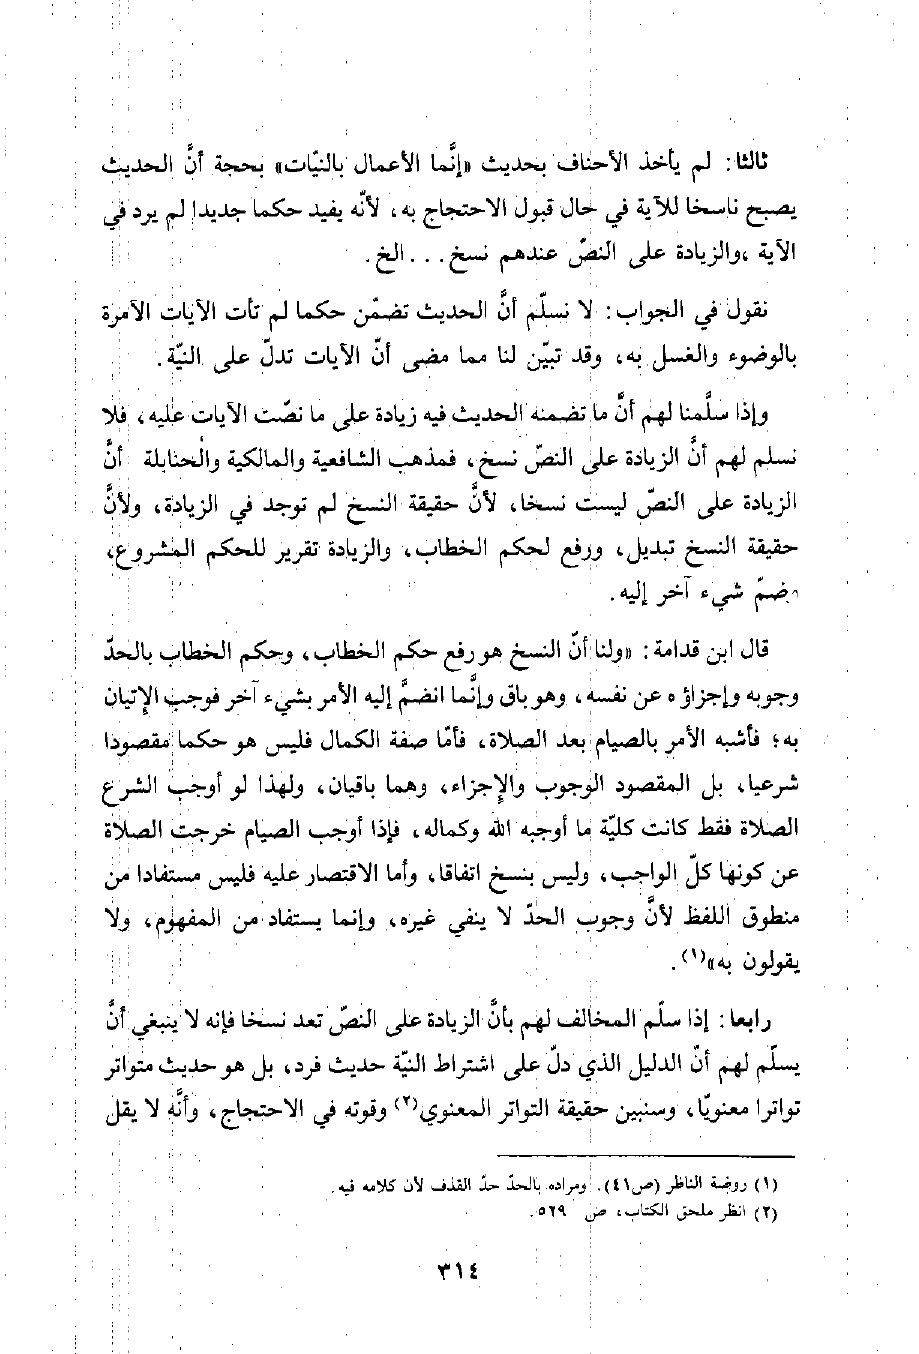 ثالثا: لم يأخذ الأحناف بحديث «إنَّما الأعمال بالنيّات» بحجة أنَّ الحديث
يصبح ناسخا للآية في حال قبول الاحتجاج به، لأنّه يفيد حكما جديدا لم يرد في
الآية ،والزيادة على النصّ عندهم نسخ... الخ.
نقول في الجواب: لا نسلّم أنَّ الحديث تضمّن حكما لم تأت الآيات الآمرة
بالوضوء والغسل به، وقد تبيّن لنا مما مضى أنّ الآيات تدلّ على النيّة.
وإذا سلَّمنا لهم أنَّ ما تضمنه الحديث فيه زيادة على ما نصّت الآيات عليه، فلا
نسلم لهم أنَّ الزيادة على النصّ نسخ، فمذهب الشافعية والمالكية والحنابلة أنَّ
الزيادة على النصّ ليست نسخا، لأنَّ حقيقة النسخ لم توجد في الزيادة، ولأنَّ
حقيقة النسخ تبديل، ورفع لحكم الخطاب، والزيادة تقرير للحكم المشروع،
وضمّ شيء آخر إليه.
قال ابن قدامة: «ولنا أنّ النسخ هو رفع حكم الخطاب، وحكم الخطاب بالحدّ
وجوبه وإجزاؤه عن نفسه، وهو باق وإنَّما انضمَّ إليه الأمر بشيء آخر فوجب الإتيان
به؛ فأشبه الأمر بالصيام بعد الصلاة، فأمّا صفة الكمال فليس هو حكما مقصودا
شرعيا، بل المقصود الوجوب والإجزاء، وهما باقيان، ولهذا لو أوجب الشرع
الصلاة فقط كانت كليّة ما أوجبه الله وكماله، فإذا أوجب الصيام خرجت الصلاة
عن كونها كلّ الواجب، وليس بنسخ اتفاقا، وأما الاقتصار عليه فليس مستفادا من
منطوق اللفظ لأنَّ وجوب الحدّ لا ينفي غيره، وإنما يستفاد من المفهوم، ولا
يقولون به»(١).
رابعا: إذا سلّم المخالف لهم بأنَّ الزيادة على النصّ تعد نسخا فإنه لا ينبغي أنَّ
يسلّم لهم أنّ الدليل الذي دلّ على اشتراط النيّة حديث فرد، بل هو حديث متواتر
تواترا معنويّا، وسنبين حقيقة التواتر المعنوي(٢) وقوته في الاحتجاج، وأنَّه لا يقل
(١) روضة الناظر (ص٤١). ومراده بالحدّ حدّ القذف لأن كلامه فيه.
(٢) انظر ملحق الكتاب، ص ٥٦٩.
٣١٤